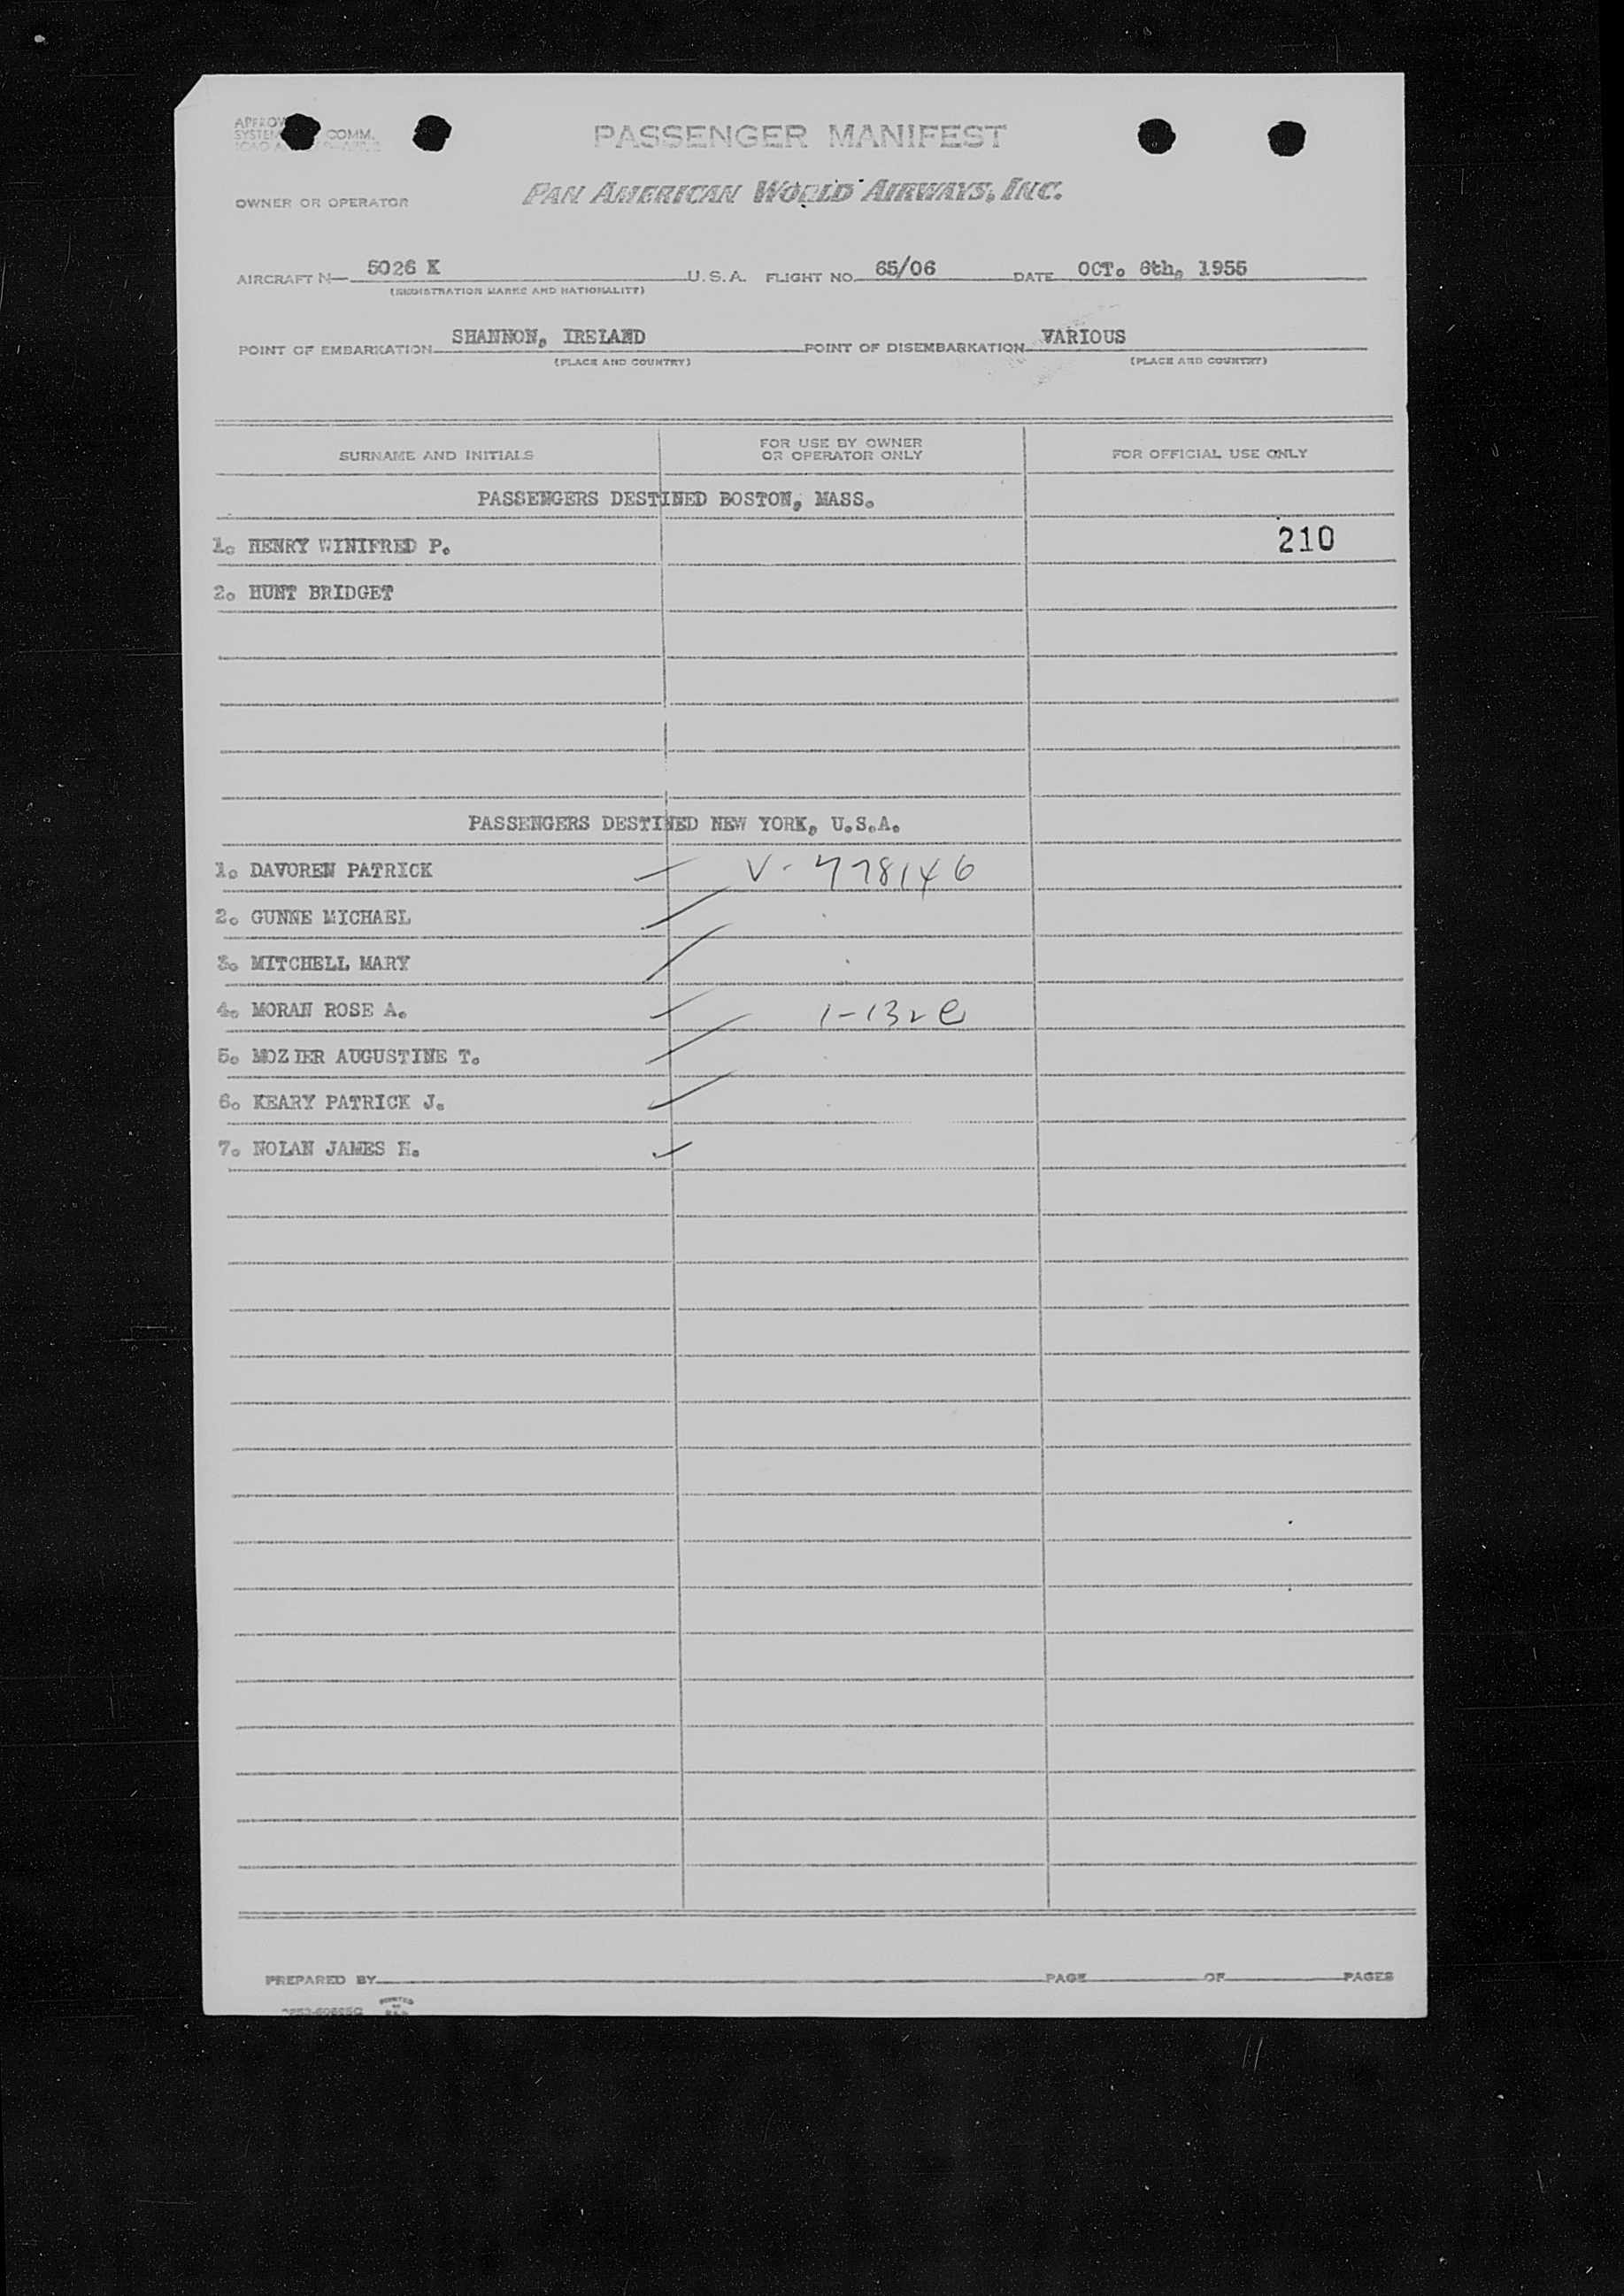 PASSENGER MANIFEST
COMM.
OWNER OR OPERATOR PAN AMERICAN WORLD AIRWAYS, INC.
AIRCRAFT N— 5026 K U.S.A. FLIGHT NO. 65/06 DATE OCT. 6th, 1955
(REGISTRATION MARKS AND NATIONALITY)
POINT OF EMBARKATION SHANNON, IRELAND POINT OF DISEMBARKATION VARIOUS
(PLACE AND COUNTRY) (PLACE AND COUNTRY)
SURNAME AND INITIALS FOR USE BY OWNER OR OPERATOR ONLY FOR OFFICIAL USE ONLY
PASSENGERS DESTINED BOSTON, MASS.
1. HENRY WINIFRED P. 210
2. HUNT BRIDGET
PASSENGERS DESTINED NEW YORK, U.S.A.
1. DAVOREN PATRICK V-778146
2. GUNNE MICHAEL
3. MITCHELL MARY
4. MORAN ROSE A.
5. MOZIER AUGUSTINE T.
6. KEARY PATRICK J.
7. NOLAN JAMES H.
PREPARED BY PAGE OF PAGES